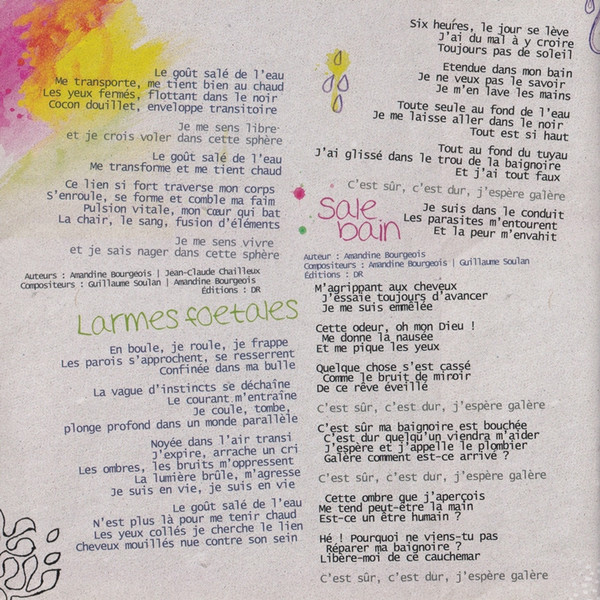 Le goût salé de l'eau
Me transporte, me tient bien au chaud
Les yeux fermés, flottant dans le noir
Cocon douillet, enveloppe transitoire
Je me sens libre
et je crois voler dans cette sphère
Le goût salé de l'eau
Me transforme et me tient chaud
Ce lien si fort traverse mon corps
S'enroule, se forme et comble ma faim
Pulsion vitale, mon cœur qui bat
La chair, le sang, fusion d'éléments
Je me sens vivre
et je sais nager dans cette sphère
Auteurs : Amandine Bourgeois | Jean-Claude Chailleux
Compositeurs : Guillaume Soulan | Amandine Bourgeois
Éditions : DR
Larmes foetales
En boule, je roule, je frappe
Les parois s'approchent, se resserrent
Confinée dans ma bulle
La vague d'instincts se déchaîne
Le courant m'entraîne
Je coule, tombe,
plonge profond dans un monde parallèle
Noyée dans l'air transi
J'expire, arrache un cri
Les ombres, les bruits m'oppressent
La lumière brûle, m'agresse
Je suis en vie, je suis en vie
Le goût salé de l'eau
N'est plus là pour me tenir chaud
Les yeux collés je cherche le lien
Cheveux mouillés nue contre son sein
Six heures, le jour se lève
J'ai du mal à y croire
Toujours pas de soleil
Etendue dans mon bain
Je ne veux pas le savoir
Je m'en lave les mains
Toute seule au fond de l'eau
Je me laisse aller dans le noir
Tout est si haut
Tout au fond du tuyau
J'ai glissé dans le trou de la baignoire
Et j'ai tout faux
C'est sûr, c'est dur, j'espère galère
Je suis dans le conduit
Les parasites m'entourent
Et la peur m'envahit
sale
bain
Auteur : Amandine Bourgeois
Compositeurs : Amandine Bourgeois | Guillaume Soulan
Éditions : DR
M'agrippant aux cheveux
J'essaie toujours d'avancer
Je me suis emmêlée
Cette odeur, oh mon Dieu !
Me donne la nausée
Et me pique les yeux
Quelque chose s'est cassé
Comme le bruit de miroir
De ce rêve éveillé
C'est sûr, c'est dur, j'espère galère
C'est sûr ma baignoire est bouchée
C'est dur quelqu'un viendra m'aider
J'espère et j'appelle le plombier
Galère comment est-ce arrivé ?
C'est sûr, c'est dur, j'espère galère
Cette ombre que j'aperçois
Me tend peut-être la main
Est-ce un être humain ?
Hé ! Pourquoi ne viens-tu pas
Réparer ma baignoire ?
Libère-moi de ce cauchemar
C'est sûr, c'est dur, j'espère galère